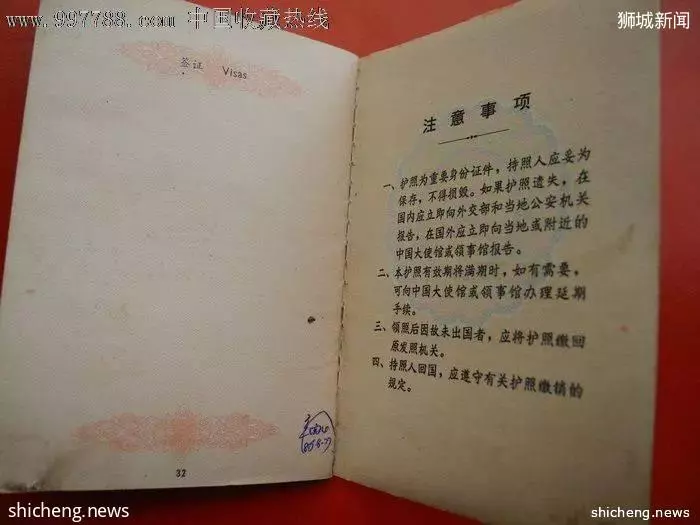 www.997788.com 中国收藏热线
狮城新闻
签证 Visas
32
注意事项
一、护照为重要身份证件，持照人应妥为
保存，不得损毁。如果护照遗失，在
国内应立即向外交部和当地公安机关
报告，在国外应立即向当地或附近的
中国大使馆或领事馆报告。
二、本护照有效期将满期时，如有需要，
可向中国大使馆或领事馆办理延期
手续。
三、领照后因故未出国者，应将护照缴回
原发照机关。
四、持照人回国，应遵守有关护照缴销的
规定。
shicheng.news
shicheng.news